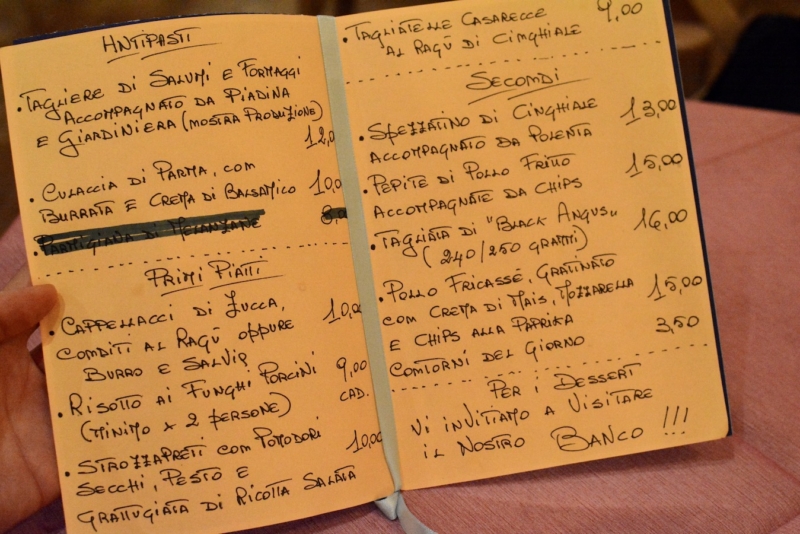 ANTIPASTI
• TAGLIERE DI SALUMI E FORMAGGI
ACCOMPAGNATO DA PIADINA
E GIARDINIERA (MOSTRA PRODUZIONE)
12,0
• CULACCIA DI PARMA, CON
BURRATA E CREMA DI BALSAMICO 10,0
• PARMIGIANA DI MELANZANE 8,0
PRIMI PIATTI
• CAPPELLACCI DI ZUCCA, 10,00
CONDITI AL RAGÙ OPPURE
BURRO E SALVIA
• RISOTTO AI FUNGHI PORCINI 9,00
(MINIMO x 2 PERSONE) CAD.
• STROZZAPRETI CON POMODORI 10,00
SECCHI, PESTO E
GRATTUGIATA DI RICOTTA SALATA
• TAGLIATELLE CASARECCE 9,00
AL RAGÙ DI CINGHIALE
SECONDI
• SPEZZATINO DI CINGHIALE 13,00
ACCOMPAGNATO DA POLENTA
• PEPITE DI POLLO FRITTO 15,00
ACCOMPAGNATE DA CHIPS
• TAGLIATA DI "BLACK ANGUS" 16,00
(240/250 GRAMMI)
• POLLO FRICASSÉ, GRATINATO
CON CREMA DI MAIS, MOZZARELLA 15,00
E CHIPS ALLA PAPRIKA
CONTORNI DEL GIORNO 3,50
PER I DESSERT
VI INVITIAMO A VISITARE
IL NOSTRO BANCO!!!